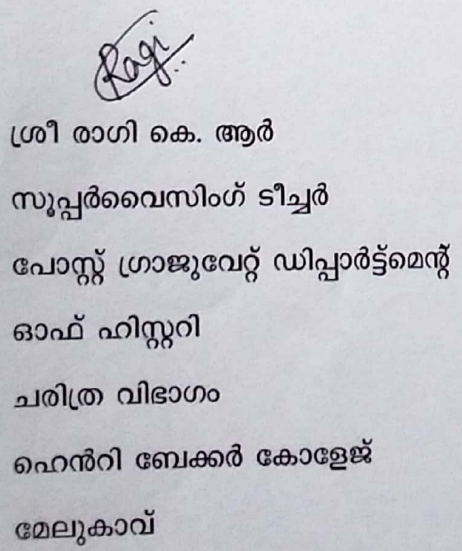 Ragi
ശ്രീ രാഗി കെ. ആർ
സൂപ്പർവൈസിംഗ് ടീച്ചർ
പോസ്റ്റ് ഗ്രാജുവേറ്റ് ഡിപ്പാർട്ട്മെന്റ്
ഓഫ് ഹിസ്റ്ററി
ചരിത്ര വിഭാഗം
ഹെൻറി ബേക്കർ കോളേജ്
മേലുകാവ്